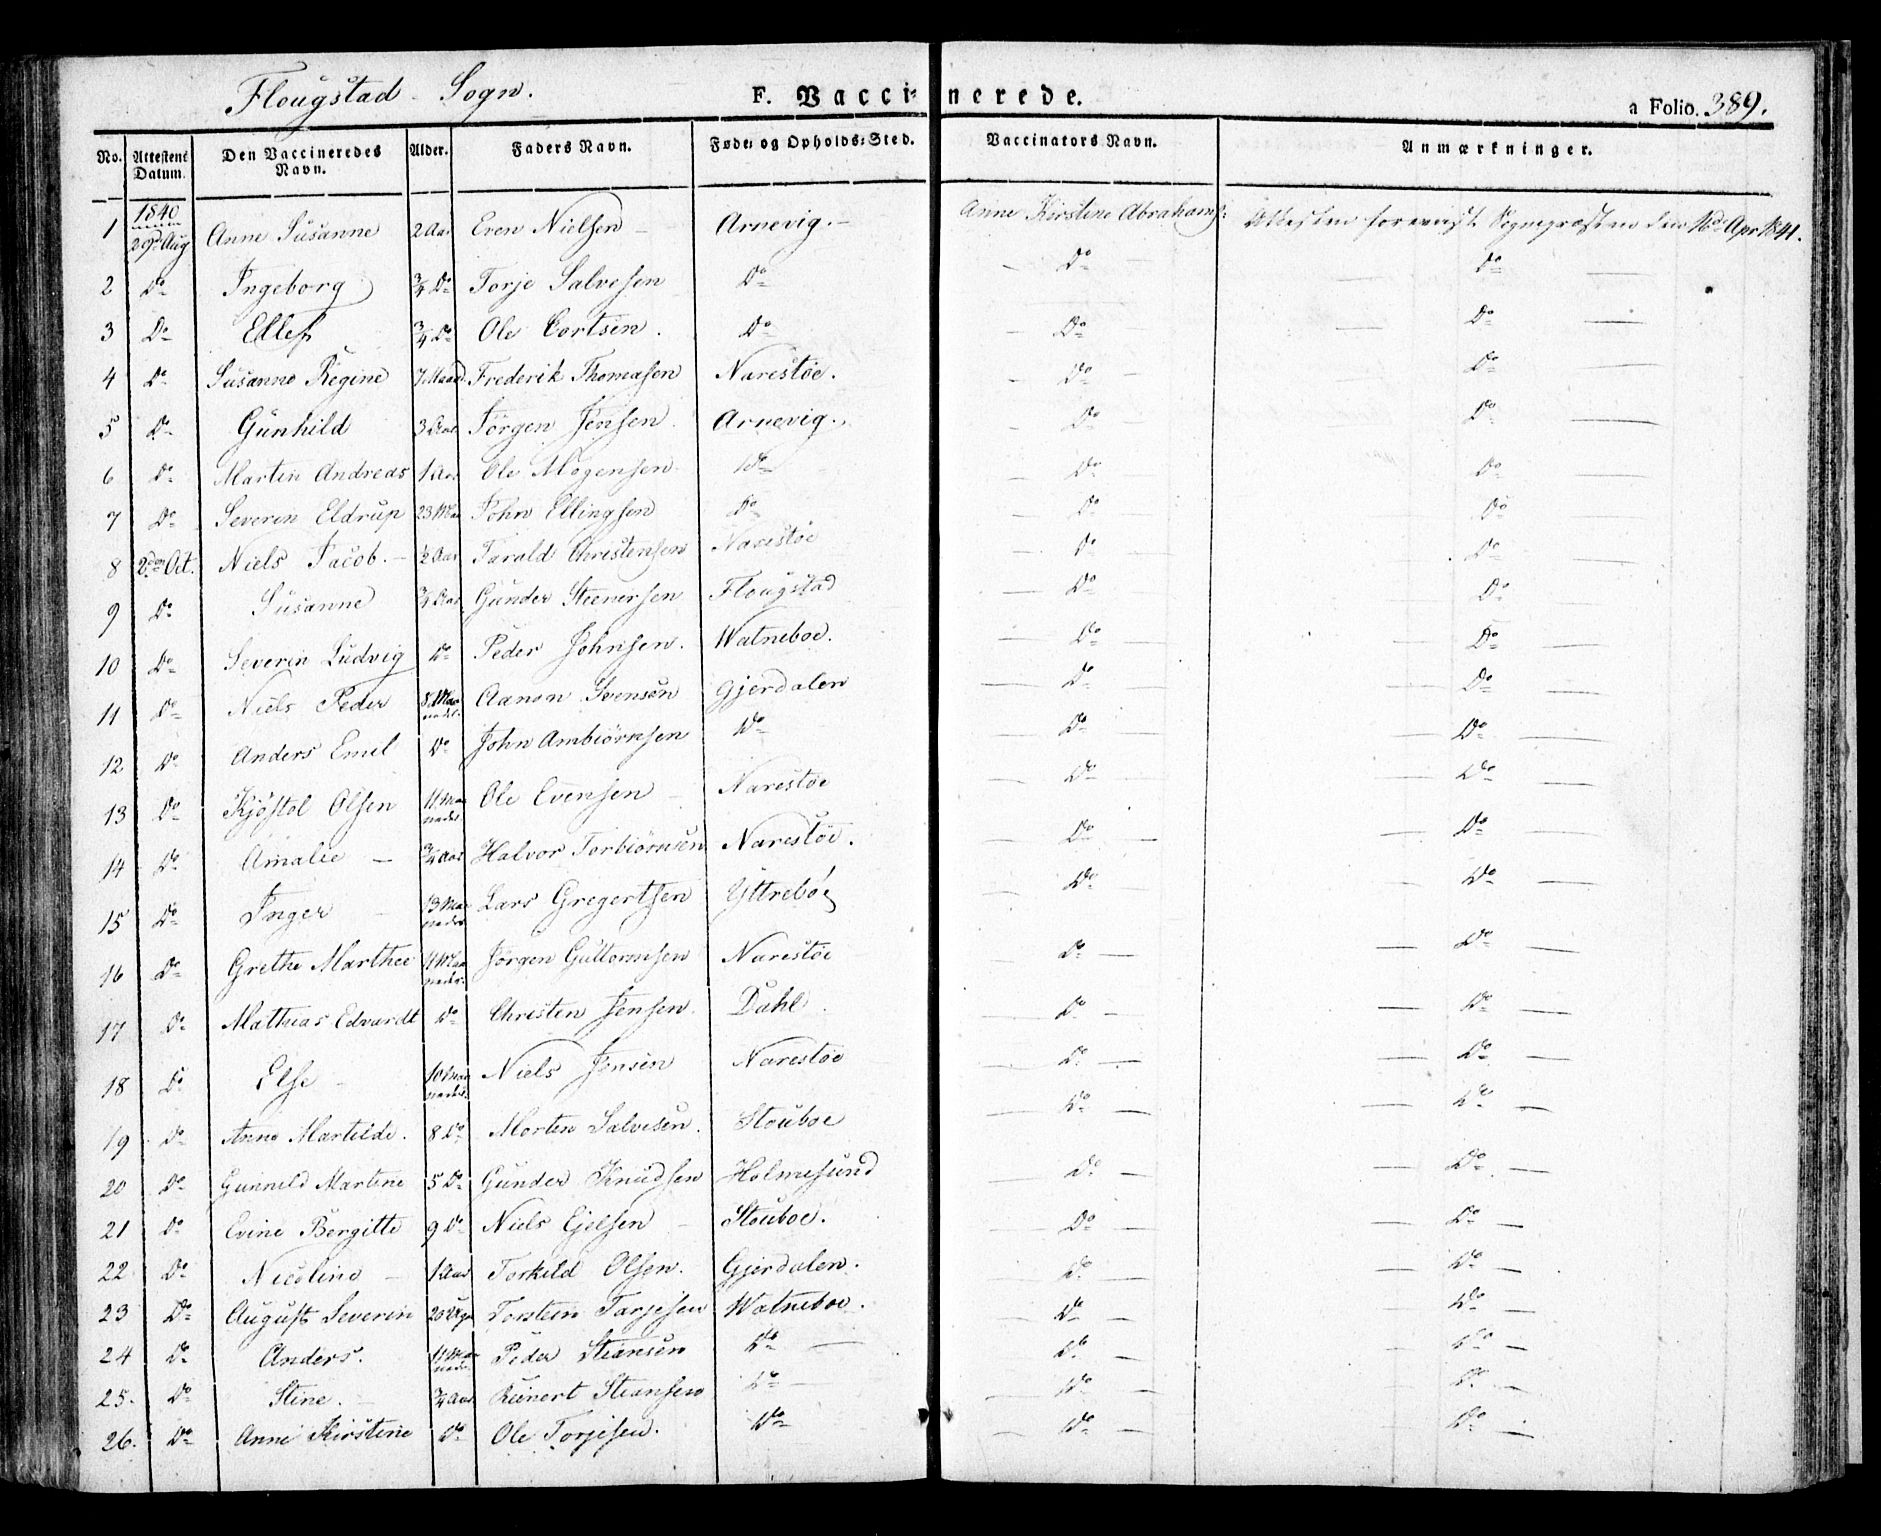 Flougstad Sogn.
F. Vaccinerede.
a Folio. 389.
No. | Attestens Datum. | Den Vaccineredes Navn. | Alder. | Faders Navn. | Føde- og Opholds-Sted. | Vaccinators Navn. | Anmærkninger.
1840
1 | 29de Aug | Anne Susanne | 2 Aar | Even Nielsen | Arnevig. | Anne Kirstine Abrahams: | Attesten foreviist Sognepræsten den 16de Apr 1841.
2 | Do | Ingeborg | 3/4 Do | Torje Salvesen | Do | Do | Do
3 | Do | Ellef | 3/4 Do | Ole Cortsen. | Do | Do | Do
4 | Do | Susanne Regine | 7 Maad | Frederik Thomasen | Narestöe. | Do | Do
5 | Do | Gunhild | 3 Aar | Jörgen Jensen | Arnevig. | Do | Do
6 | Do | Martin Andreas | 1 Aar | Ole Mogensen | Do | Do | Do
7 | Do | Severin Eldrup | 23 Maa | John Ellingsen | Do | Do | Do
8 | 2den Oct. | Niels Jacob. | 1/2 Aar | Tarald Christensen | Narestöe | Do | Do
9 | Do | Susanne | 3/4 Aar | Gunder Steenersen | Flougstad | Do | Do
10 | Do | Severin Ludvig | Do | Peder Johnsen. | Watneboe. | Do | Do
11 | Do | Niels Peder | 8 Maaneder. | Aanon Svensen | Gjerdalen | Do | Do
12 | Do | Anders Emil | Do | John Ambiörnsen | Do | Do | Do
13 | Do | Kjöstol Olsen | 11 Maaneder | Ole Evensen | Narestöe | Do | Do
14 | Do | Amalie | 3/4 Aar | Halvor Torbiörnsen | Narestöe. | Do | Do
15 | Do | Inger | 13 Maaneder | Lars Gregertsen | Yttreböe | Do | Do
16 | Do | Grethe Marthee | 11 Maaneder. | Jörgen Guttormsen | Narestöe | Do | Do
17 | Do | Mathias Edvardt | Do | Christen Jensen. | Dahl. | Do | Do
18 | Do | Else | 10 Maaneder. | Niels Jensen | Narestöe | Do | Do
19 | Do | Anne Martilde. | 8 Do | Morten Salvesen. | Stouboe | Do | Do
20 | Do | Gunnild Martine | 5 Do | Gunder Knudsen | Holmesund | Do | Do
21 | Do | Evine Bergitte | 9 Do | Niels Ejelsen | Stouboe. | Do | Do
22 | Do | Nicoline | 1 Aar | Torkild Olsen. | Gjerdalen. | Do | Do
23 | Do | August Severin | 20 Uger | Torsten Tarjesen | Watneboe. | Do | Do
24 | Do | Anders. | 11 Maaneder | Peder Steansen | Do | Do | Do
25. | Do | Stine. | 3/4 Aar | Reinert Steansen | Do | Do | Do
26. | Do | Anne Kirstine | Do | Ole Torjesen. | Do | Do | Do